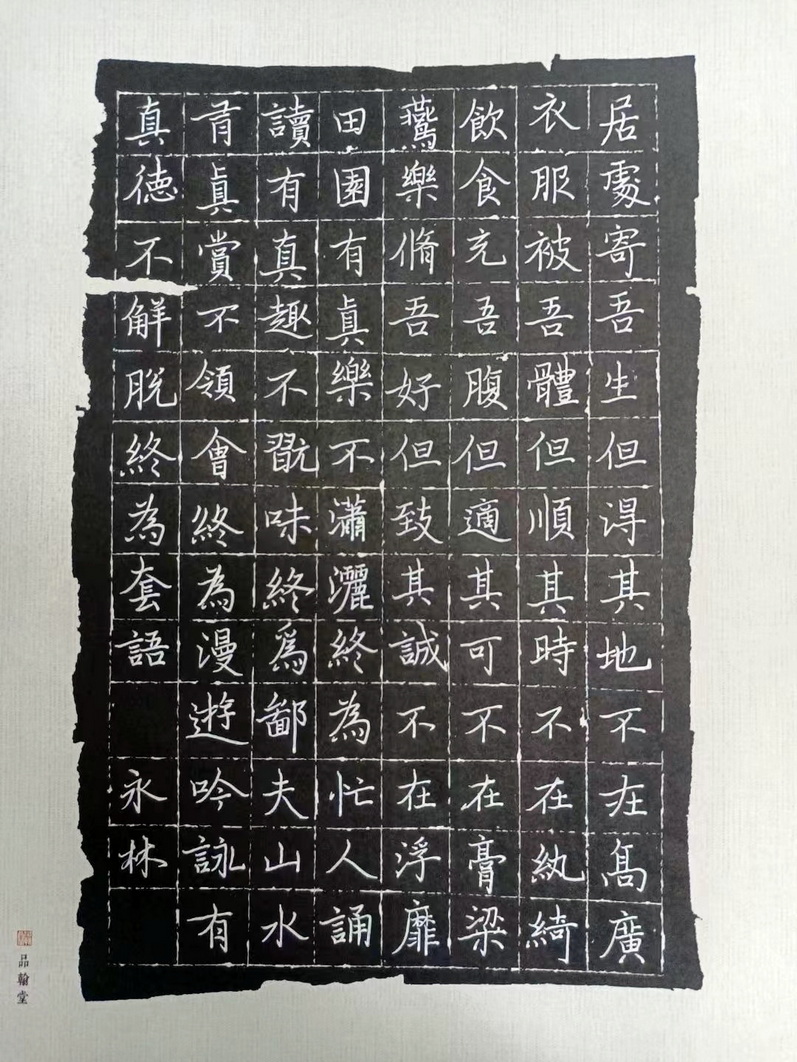 居處寄吾生但淂其地不在髙廣
衣服被吾體但順其時不在紈綺
飲食充吾腹但適其可不在膏梁
鷰樂脩吾好但致其誠不在浮靡
田園有真樂不瀟灑終為忙人誦
讀有真趣不翫味終爲鄙夫山水
有真賞不領會終為漫遊吟詠有
真徳不解脫終為套語 永林
品翰堂